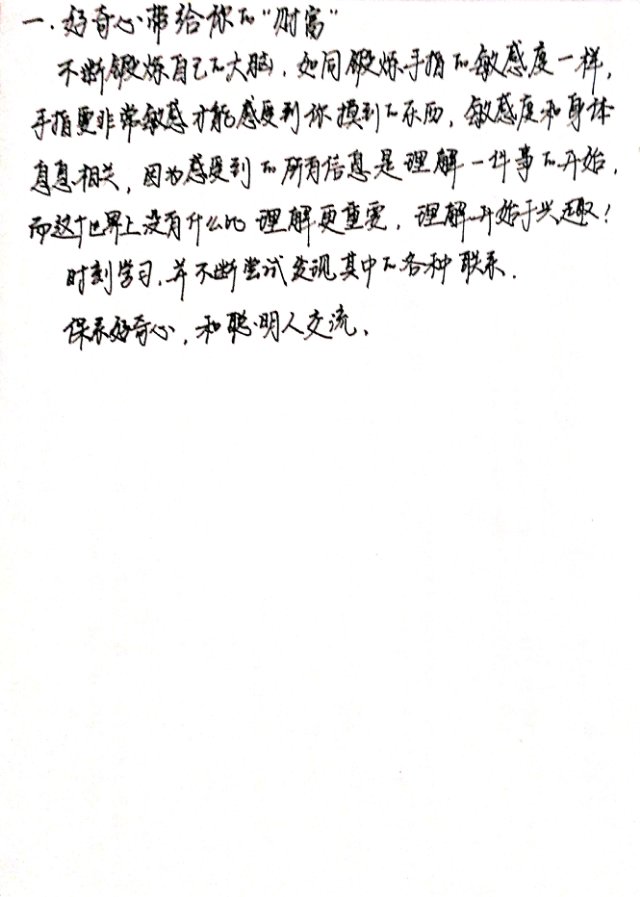 一.好奇心带给你的“财富”
不断锻炼自己的大脑,如同锻炼手指的敏感度一样,
手指要非常敏感才能感受到你摸到的东西,敏感度和身体
息息相关,因为感受到的所有信息是理解一件事的开始,
而这个世界上没有什么比理解更重要,理解开始于兴趣!
时刻学习,并不断尝试发现其中的各种联系.
保永好奇心,和聪明人交流、